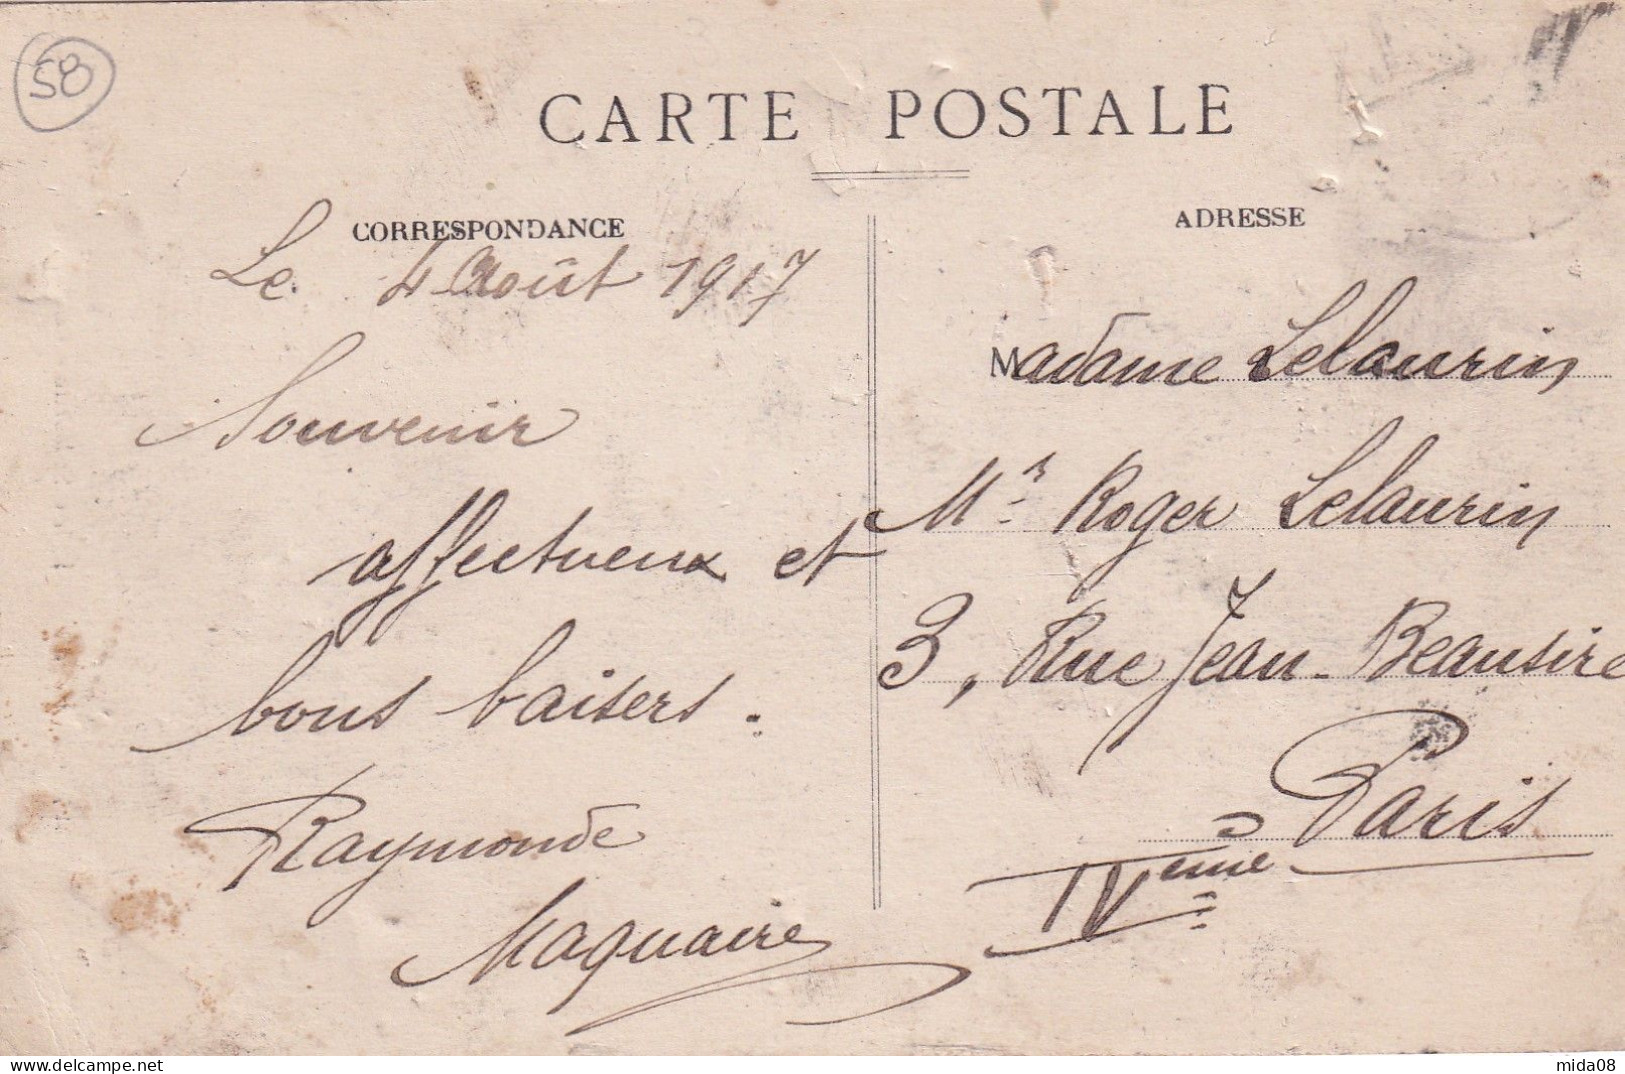 58
CARTE POSTALE
CORRESPONDANCE
Le 4 Août 1917
Souvenir
affectueux et
bons baisers.
Raymonde
Maquaire
ADRESSE
Madame Lelaurin
Mr Roger Lelaurin
3, Rue Jean-Beausire
Paris
IVeme
www.delcampe.net
mida08